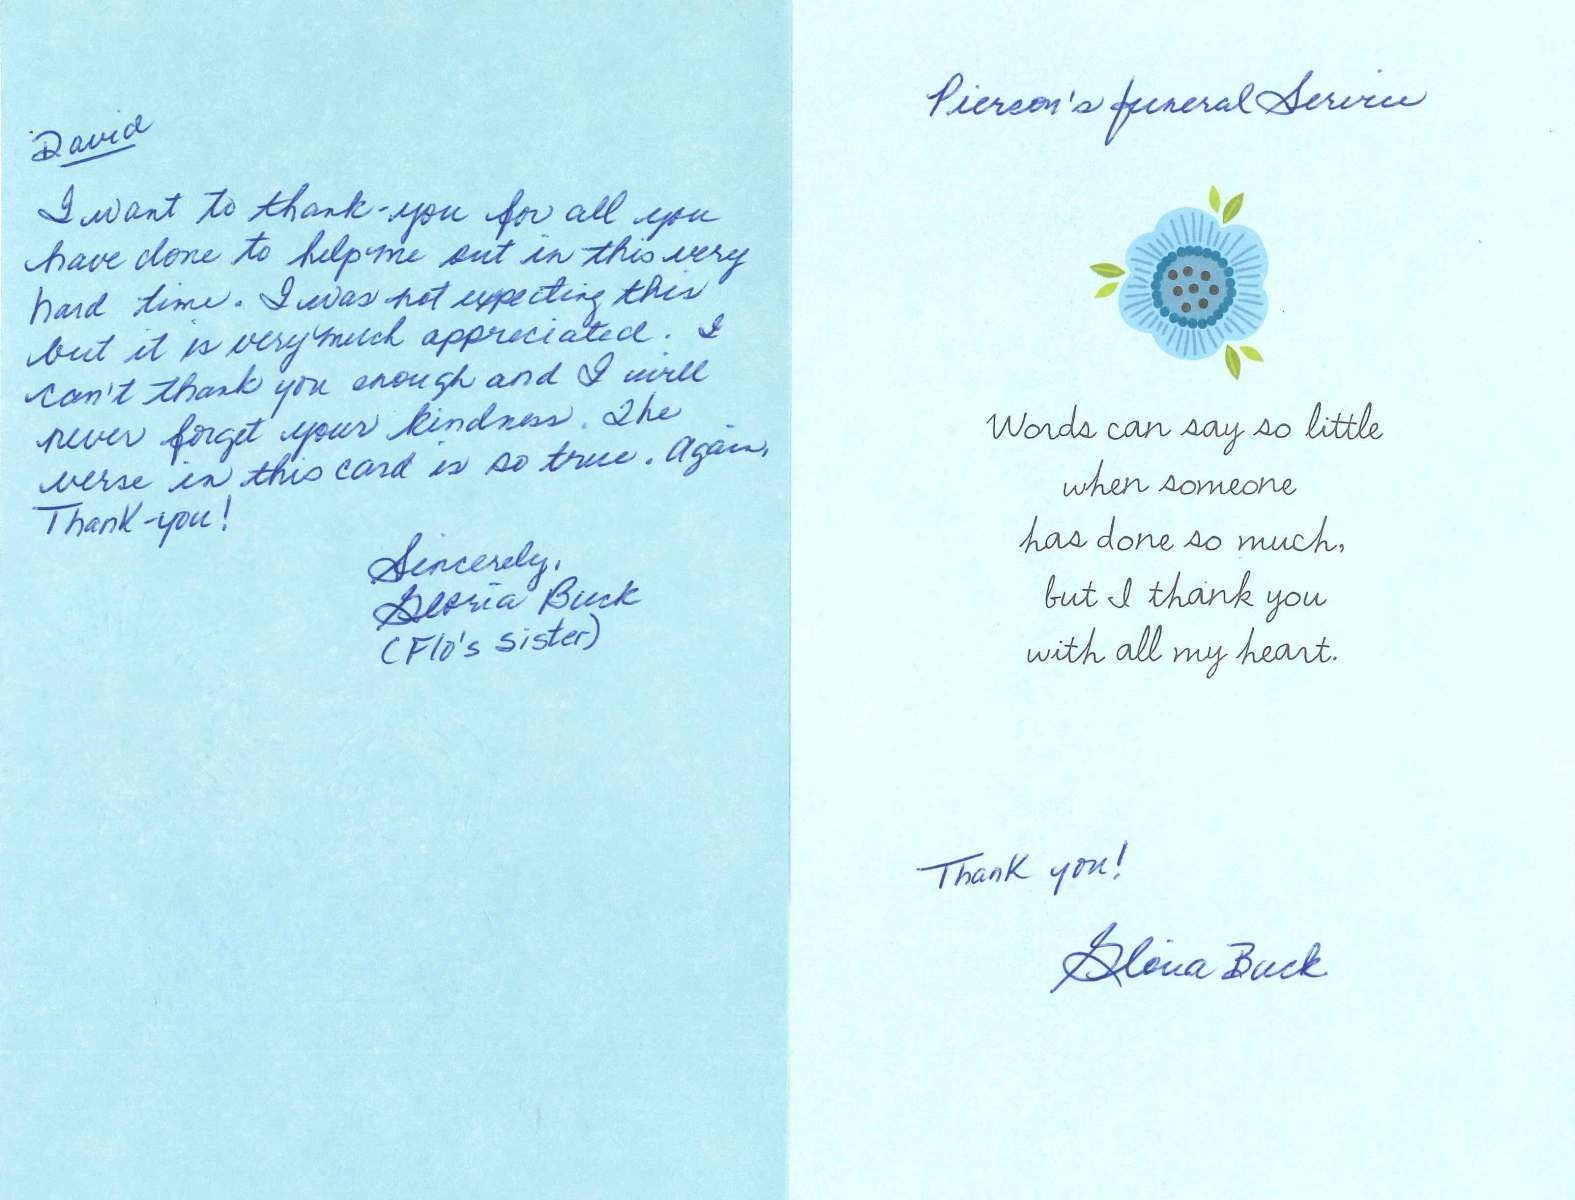 David
I want to thank-you for all you
have done to help me out in this very
hard time. I was not expecting this
but it is very much appreciated. I
can't thank you enough and I will
never forget your kindness. The
verse in this card is so true. Again,
Thank-you!
Sincerely,
Gloria Buck
(Flo's sister)
Pierson's funeral Service
Words can say so little
when someone
has done so much,
but I thank you
with all my heart.
Thank you!
Gloria Buck